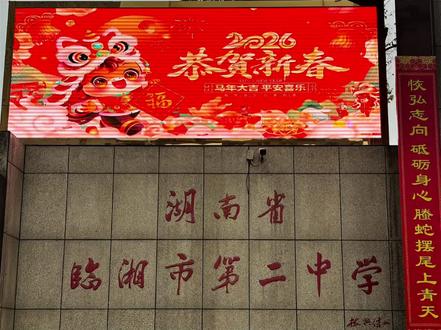 2026
恭贺新春
马年大吉 平安喜乐
福
湖南省
临湘市第二中学
恢弘志向 砥砺身心 螣蛇摆尾上青天